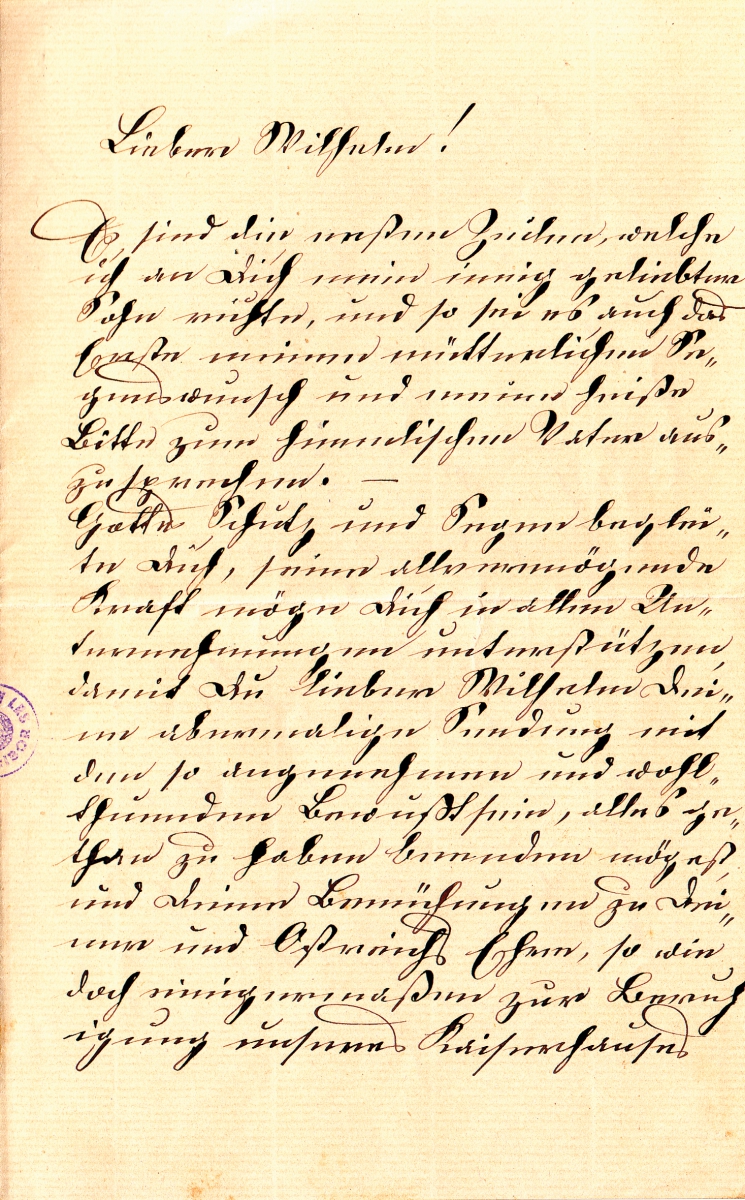 Lieber Wilhelm!
Es sind die ersten Zeilen, welche
ich an Dich mein innig geliebter
Sohn richte, und so sei es auch das
Erste meinen mütterlichen Se„
genswunsch und meine heiße
Bitte zum himmlischen Vater aus„
zusprechen. —
Gottes Schutz und Segen beglei„
te Dich, seine allvermögende
Kraft möge Dich in allen Un„
ternehmungen unterstützen,
damit Du lieber Wilhelm Dei„
ne abermalige Sendung mit
den so angenehmen und wohl„
thuenden Bewußtsein, alles ge„
than zu haben beenden mögest,
und Deine Bemühungen zu Dei„
ner und Östreichs Ehre, so wie
doch einigermaßen zur Beruh
igung unseres Kaiserhauses